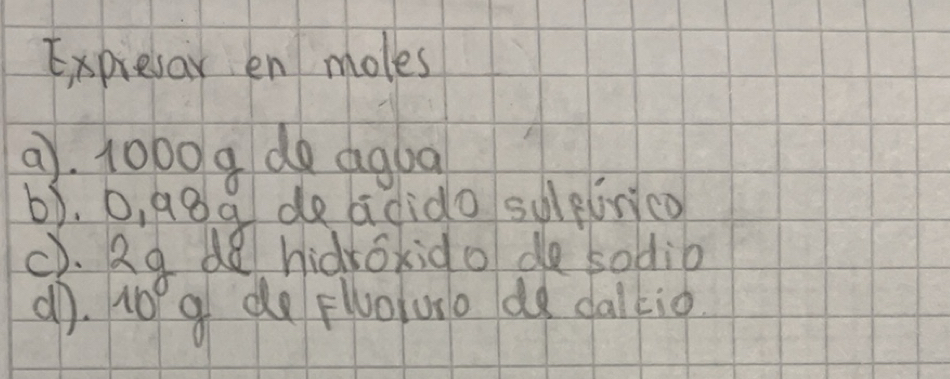 Expresar en moles
a). 1000 g de agua
b). 0,98 g de ácido sulfúrico
c). 2 g de hidróxido de sodio
d). 10 g de Fluoruro de calcio.